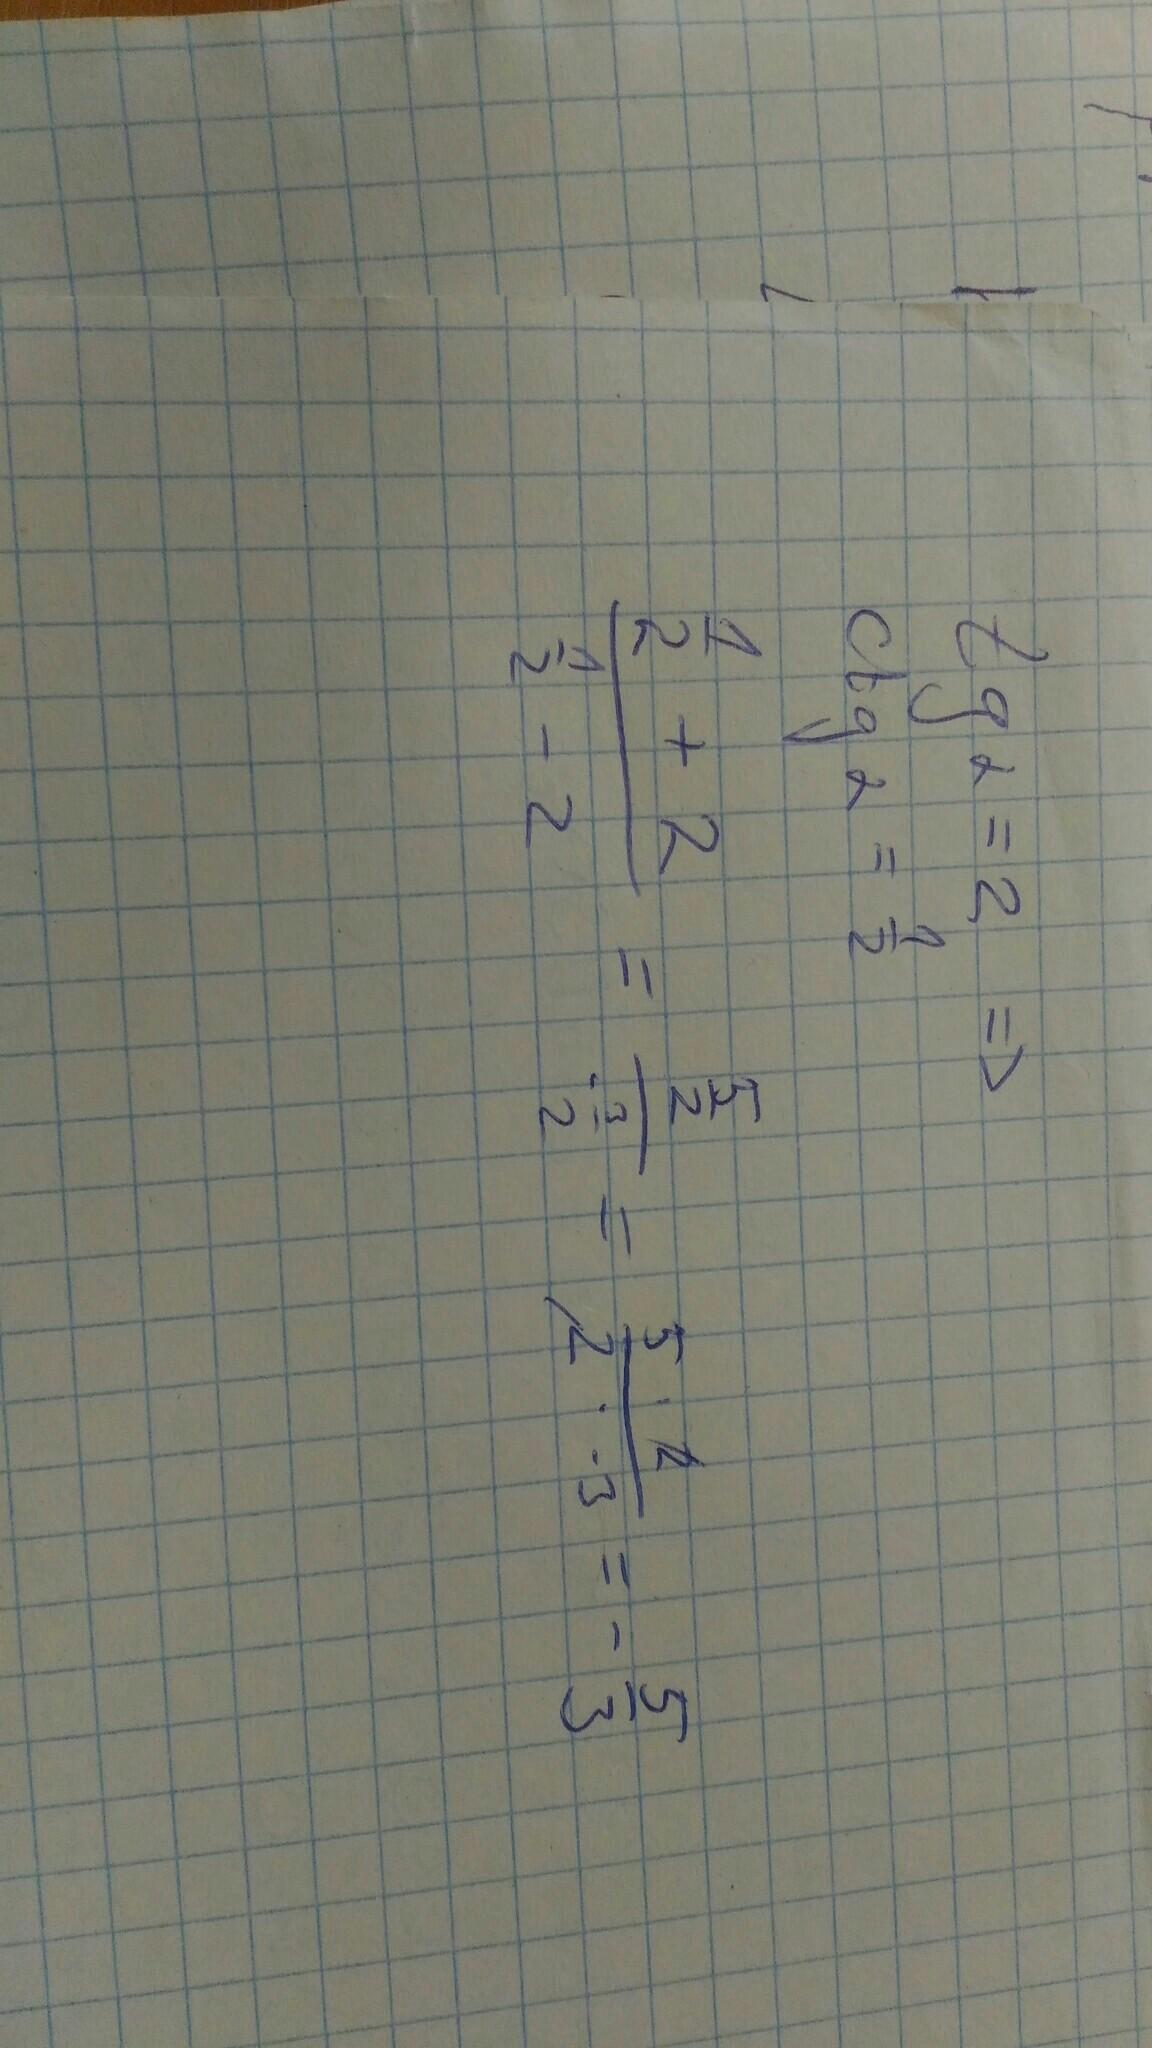 tg α = 2 =>
ctg α = 1/2
(1/2 + 2)/(1/2 - 2) = (5/2)/(-3/2) = (5 · 2)/(2 · -3) = - 5/3